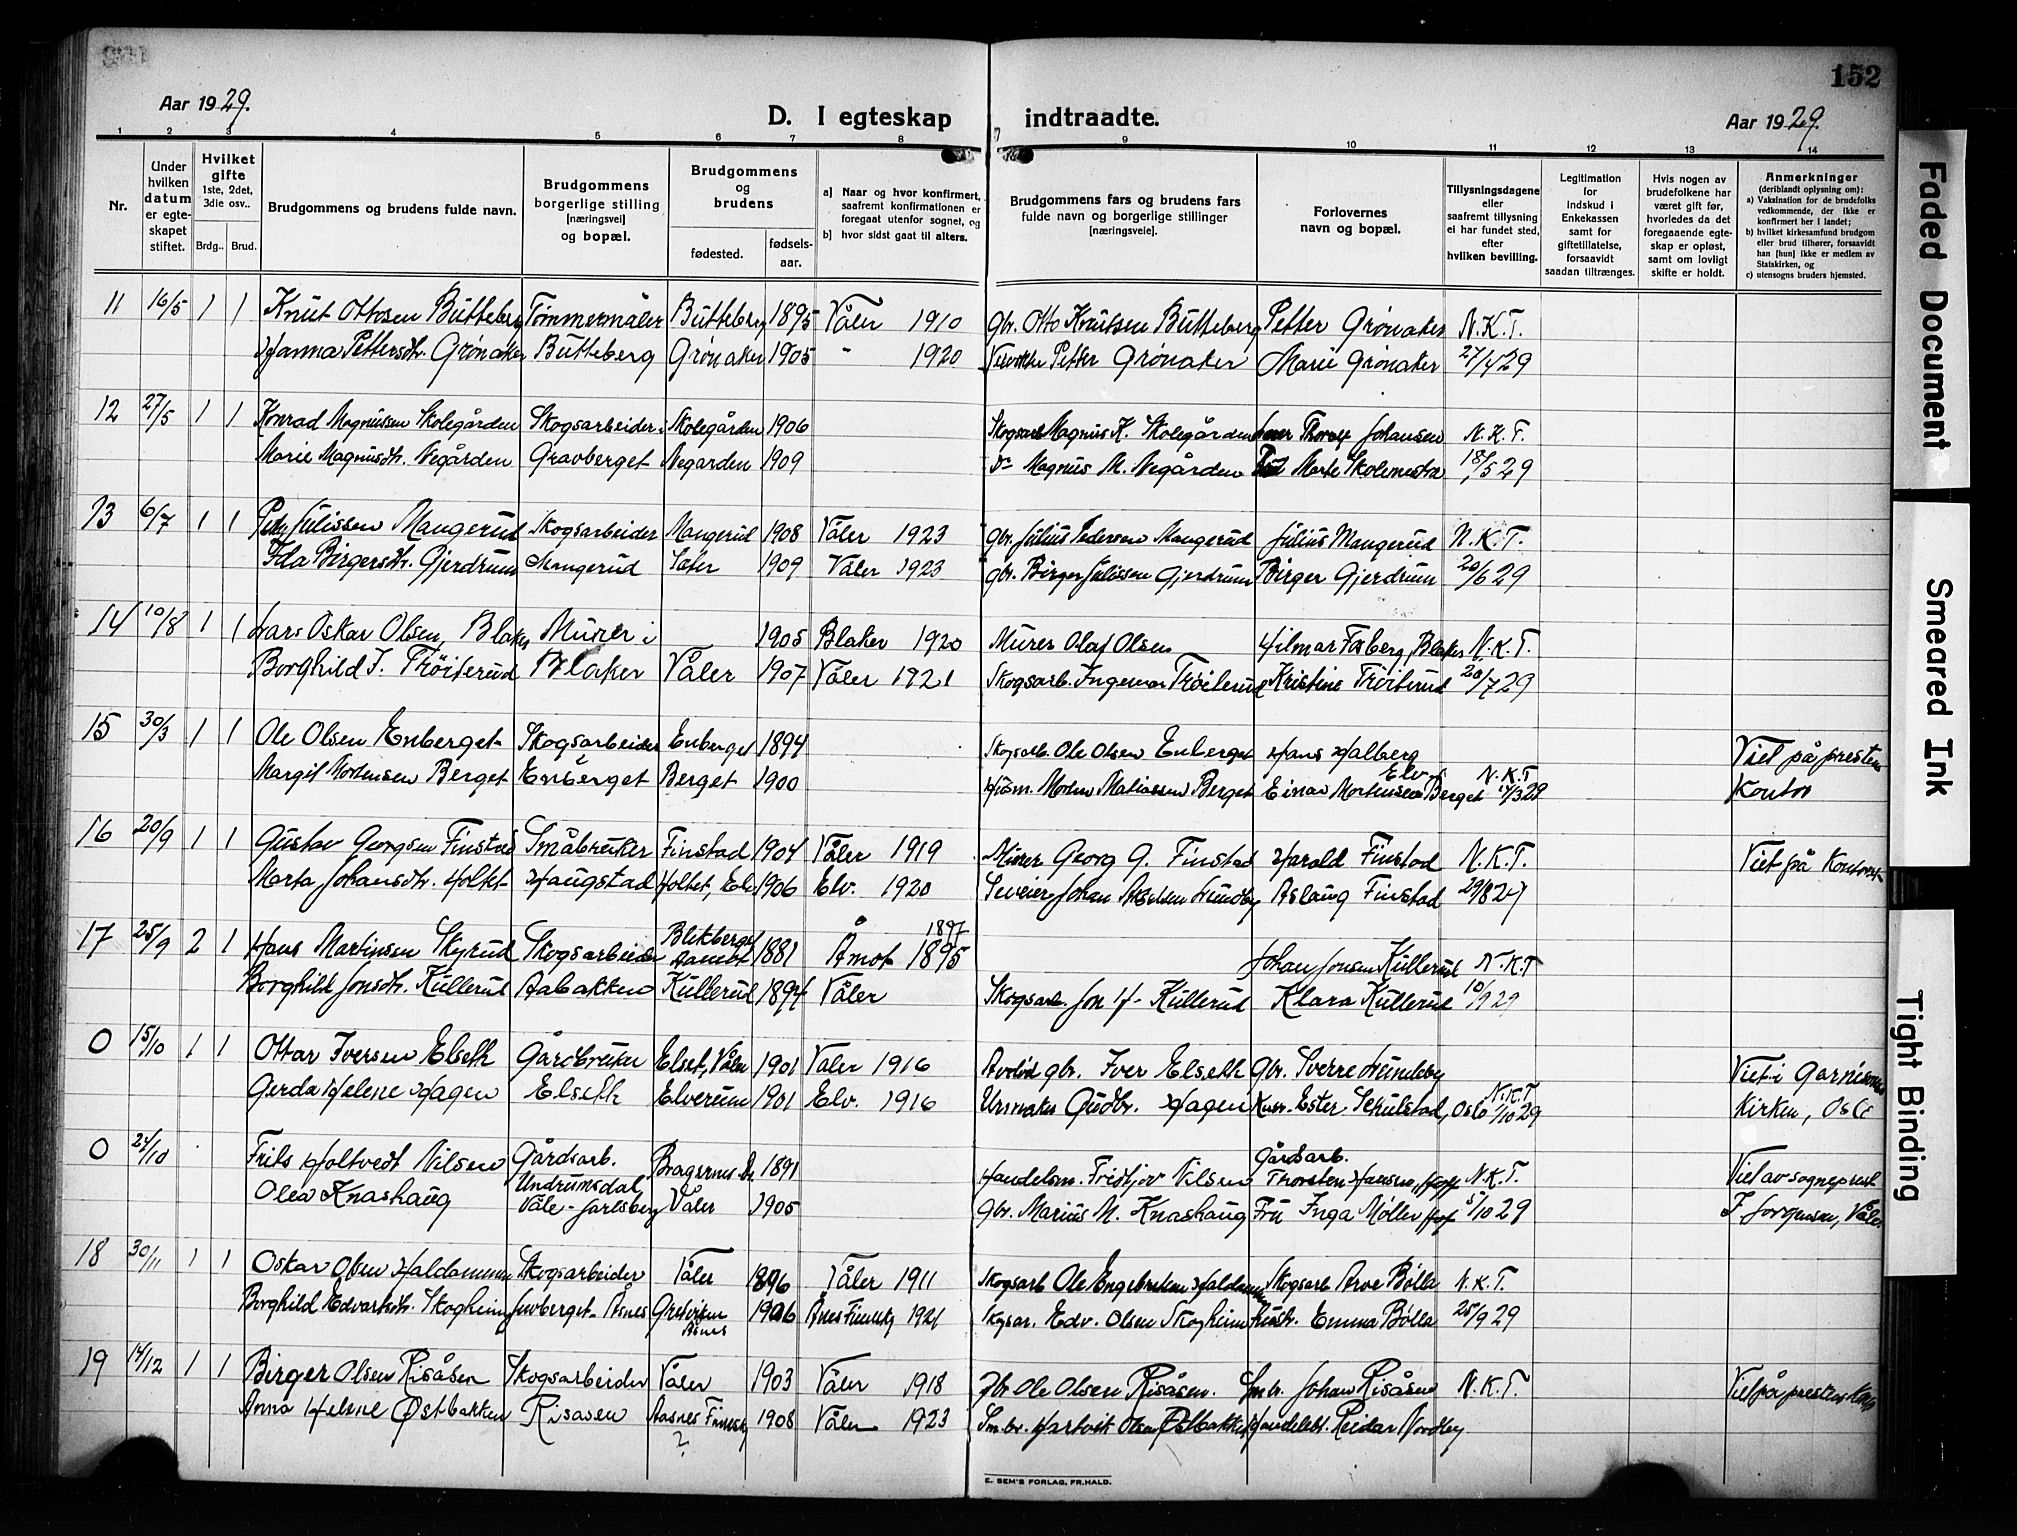 152
Aar 1929.
D. I egteskap indtraadte.
Aar 1929.
1 2 3 4 5 6 7 8 9 10 11 12 13 14
Nr.
Under hvilken datum er egteskapet stiftet.
Hvilket gifte 1ste, 2det, 3die osv..
Brdg.. Brud.
Brudgommens og brudens fulde navn.
Brudgommens borgerlige stilling [næringsvei] og bopæl.
Brudgommens og brudens
fødested. fødsels-aar.
a) Naar og hvor konfirmert, saafremt konfirmationen er foregaat utenfor sognet, og
b) hvor sidst gaat til alters.
Brudgommens fars og brudens fars fulde navn og borgerlige stillinger [næringsveie].
Forlovernes navn og bopæl.
Tillysningsdagene eller saafremt tillysning ei har fundet sted, efter hvilken bevilling.
Legitimation for indskud i Enkekassen samt for giftetillatelse, forsaavidt saadan tiltrænges.
Hvis nogen av brudefolkene har været gift før, hvorledes da det foregaaende egteskap er opløst, samt om lovligt skifte er holdt.
Anmerkninger (deriblandt oplysning om):
a) Vaksination for de brudefolks vedkommende, der ikke er konfirmert her i landet;
b) hvilket kirkesamfund brudgom eller brud tilhører, forsaavidt han [hun] ikke er medlem av Statskirken, og
c) utensogns bruders hjemsted.
11 16/5 1 1 Knut Ottosen Butteberg Tømmermåler Butteberg 1895 Våler 1910 gbr. Otto Knutsen Butteberg Petter Grønaker N.K.T.
Hanna Pettersdtr. Grønaker Butteberg Grønaker 1905 " 1920 Petter Grønaker Marie Grønaker 27/4 29
12 27/5 1 1 Konrad Magnussen Skolegården Skogsarbeider Skolegården 1906 Skogsarb. Magnus K. Skolegården Thoralf Johansen N.K.T.
Marie Magnusdtr. Negården Gravberget Negarden 1909 Magnus M. Negården Marte Skolemestra 18/5 29
13 6/7 1 1 Peter Juliussen Mangerud Skogsarbeider Mangerud 1908 Våler 1923 gbr. Julius Pedersen Mangerud Julius Mangerud N.K.T.
Ida Birgersdtr. Gjerdrum Mangerud Sæter 1909 Våler 1923 gbr. Birger Juliussen Gjerdrum Birger Gjerdrum 20/6 29
14 10/8 1 1 Lars Oskar Olsen, Blaker Murer i 1905 Blaker 1920 Murer Olaf Olsen Hilmar Fosberg, Blaker N.K.T.
Borghild I. Trøiterud Blaker Våler 1907 Våler 1921 Skogsarb. Ingemar Trøiterud Kristine Trøiterud 20/7 29
15 30/3 1 1 Ole Olsen Enberget Skogsarbeider Enberget 1894 Skogsarb. Ole Olsen Enberget Hans Halberg Viet på prestens
Elv.
Margit Mortensen Berget Enberget Berget 1900 Husm. Morten Matiassen Berget Einar Mortensen Berget N.K.T. 14/3 29 Kontor
16 20/9 1 1 Gustav Georgsen Finstad Småbruker Finstad 1904 Våler 1919 Murer Georg G. Finstad Harold Finstad N.K.T. Viet på Kontoret
Marta Johansdtr. Holtet Haugstad Holtet, Elv. 1906 Elv. 1920 Johan Lundby Aslaug Finstad 29/8 29
17 25/9 2 1 Hans Martinsen Skyrud Skogsarbeider Blikberget Aamot 1881 Åmot 1897 1895 Johan Jonsen Kullerud N.K.T
Borghild Jonsdtr. Kullerud Aabakken Kullerud 1894 Våler Skogsarb. Jon H. Kullerud Klara Kullerud 10/9 29
0 15/10 1 1 Ottar Iversen Elseth Gårdbruker Elset, Våler 1901 Våler 1916 Avdød gbr. Iver Elseth Gbr. Sverre Lundeby Viet i Garnisons
Gerda Helene Hagen Elseth Elverum 1901 Elv. 1916 Urmaker Gudbr. Hagen Ester Schulstad, Oslo N.K.T /10 29 Kirken, Oslo
0 24/10 Frits Holtvedt Nilsen Gårdsarb. Bragernes Dr. 1891 Handelsm. Fridtjov Nilsen Gårdsarb. Thorsten Hansen, Hof N.K.T. Viet av sogneprest
Olea Knashaug Undrumsdal Våle - Jarlsberg Våler 1905 Gbr. Marius M. Knashaug Fru Inga Møller Hof 5/10 29 F. Jørgensen, Våler
18 30/11 1 1 Oskar Olsen Haldammen Skogsarbeider Våler 1896 Våler 1911 Skogsarb Ole Engebretsen Haldammen Skogsarb Arve Bølla N.K.T.
Borghild Edvartsdtr. Skogheim Åsnes Åsnes 1906 Åsnes Finnsk. 1921 Skogsar. Edv. Olsen Skogheim Hustr. Emma Bølla 25/9 29
19 14/12 1 1 Birger Olsen Risåsen Skogsarbeider Våler 1903 Våler 1918 Gbr. Ole Olsen Risåsen. Smbr. Johan Risåsen N.K.T. Viet på prestens
Anna Helene Østbakken Risåsen Aasnes Finnsk. ? 1908 Våler 1923 Smbr. Hartvik Olsen Østbakken Handelsb. Reidar Nordby
E. SEM'S FORLAG, FR.HALD.
Faded Document
Smeared Ink
Tight Binding